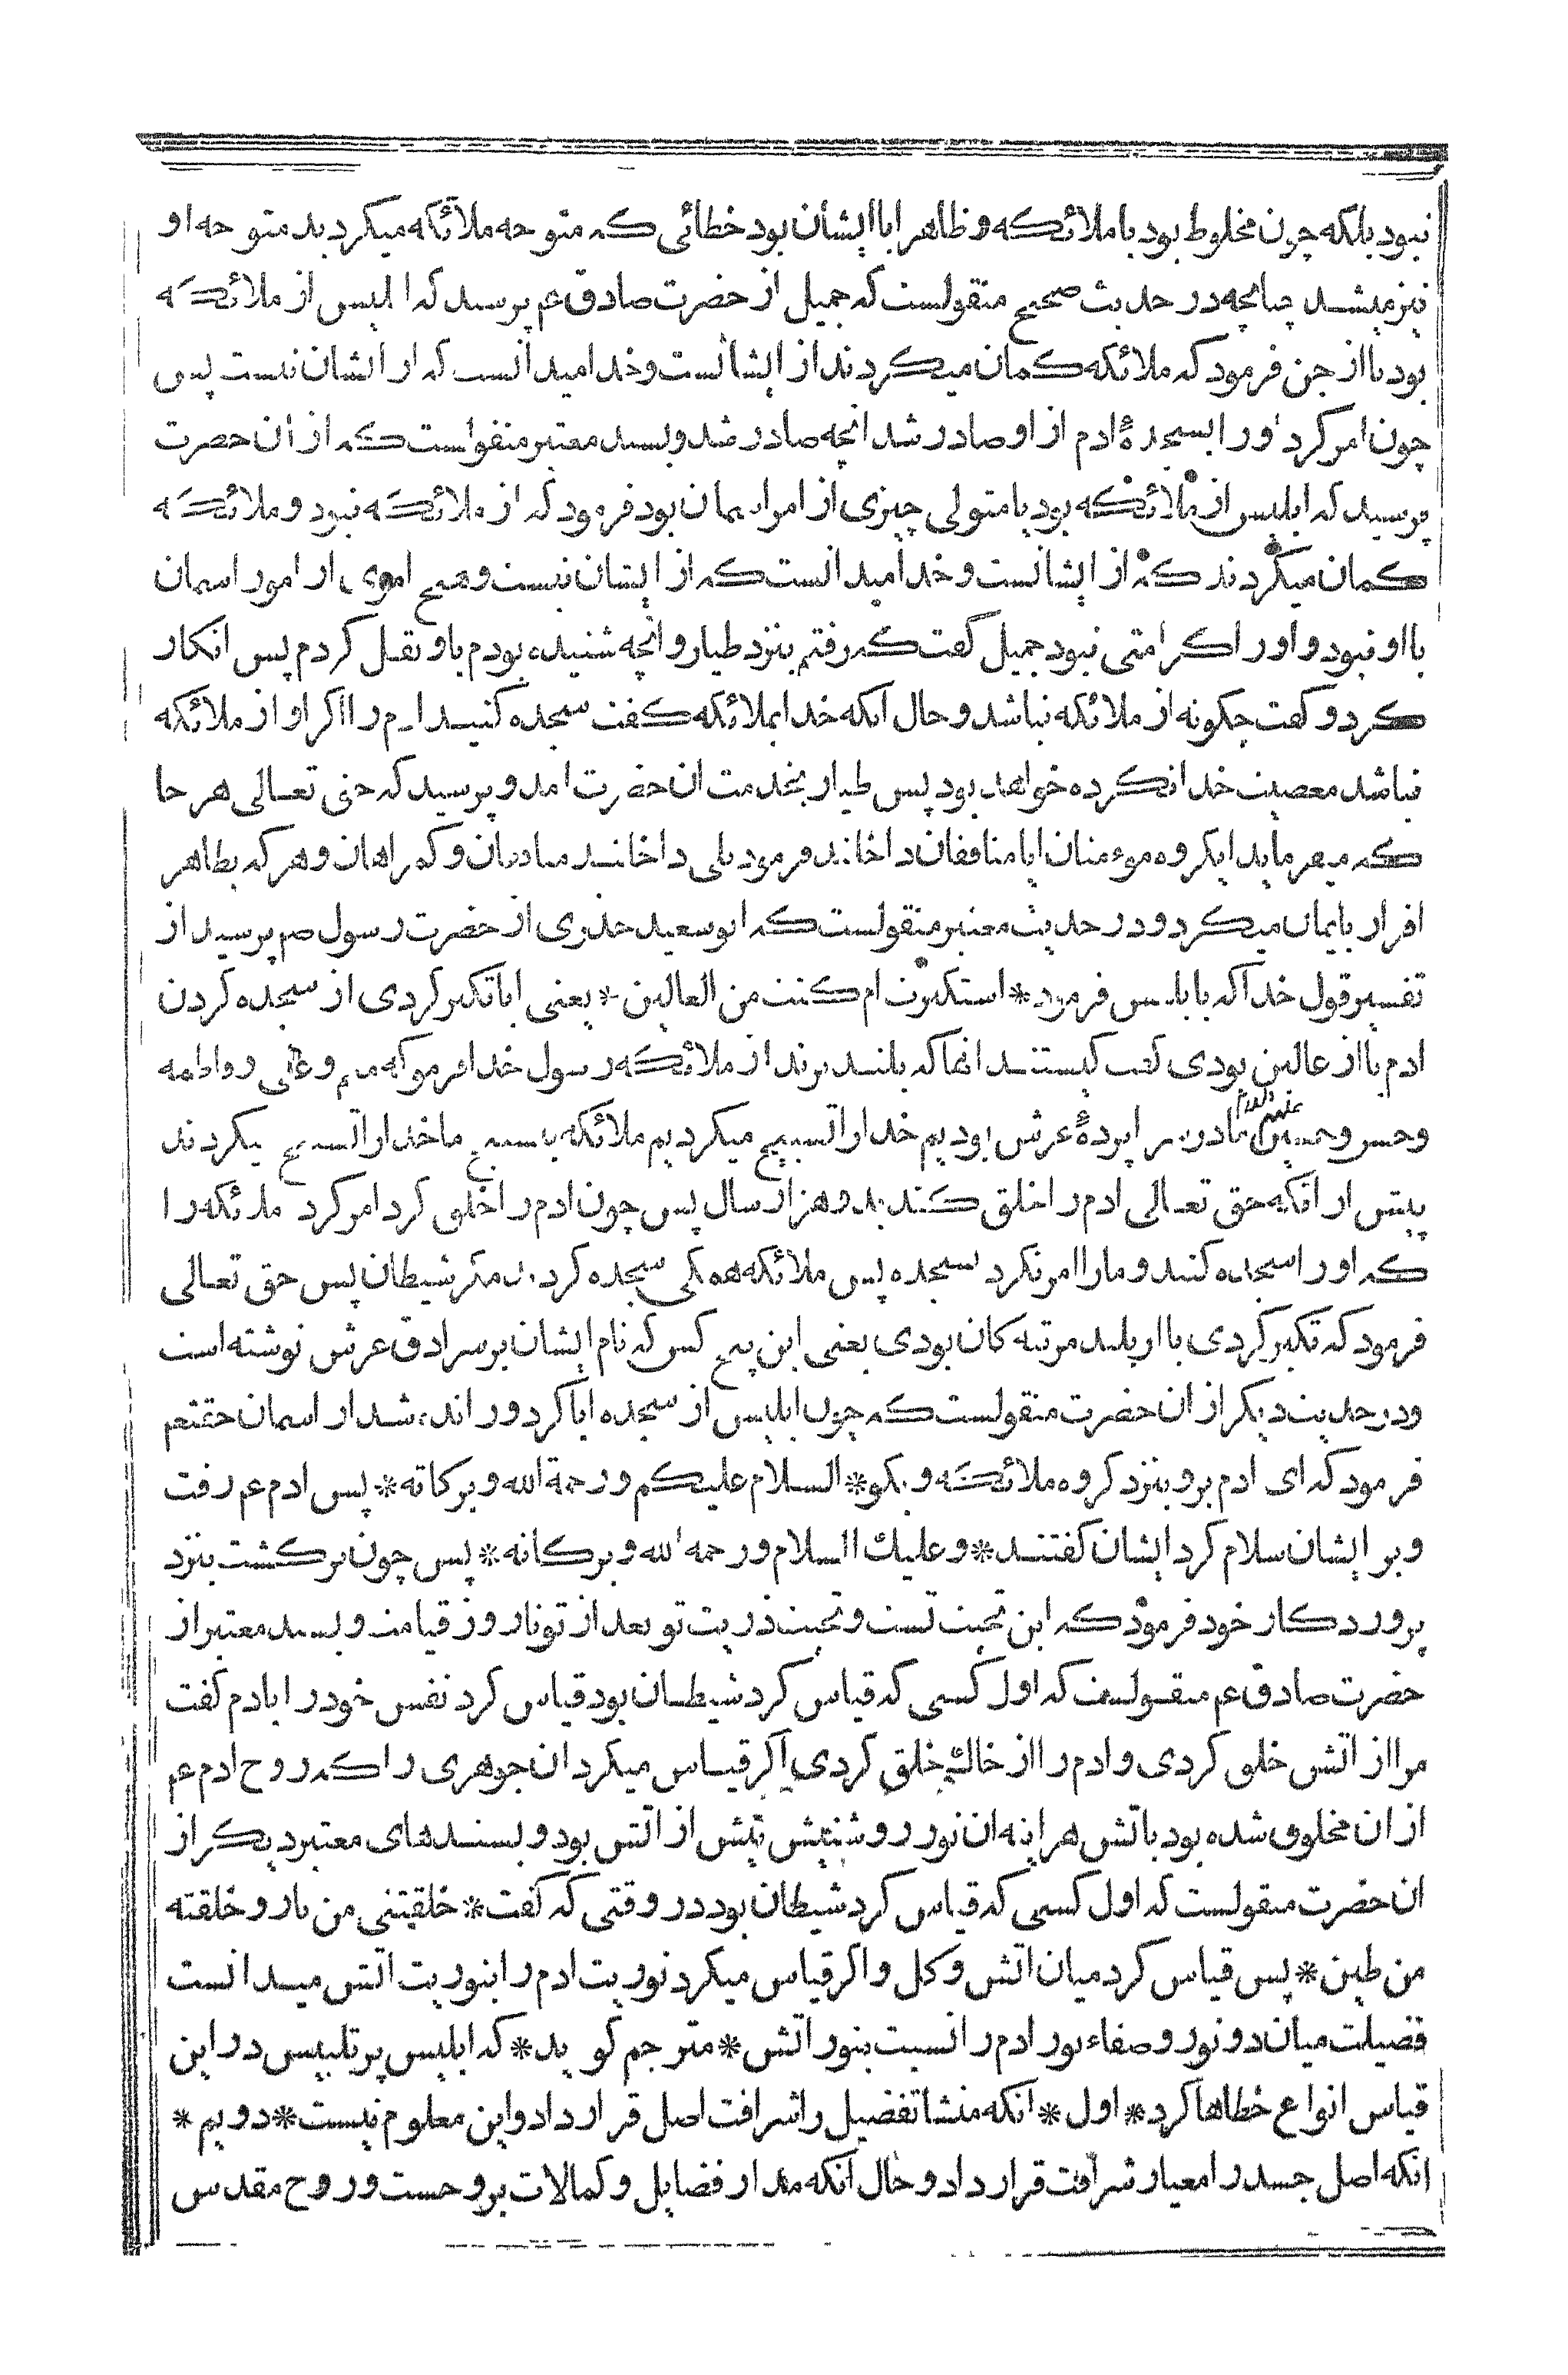 نبود بلکه چون مخلوط بود با ملائکه و ظاهرا با ایشان بود خطائی که متوجه ملائکه میکردید متوجه او
نیز میشد چنانچه در حدیث صحیح منقولست که جمیل از حضرت صادق عم پرسید که ابلیس از ملائکه
بود یا از جن فرمود که ملائکه کمان میکردند از ایشانست و خدا میدانست که از ایشان نیست پس
چون امر کرد او را بسجدهٔ ادم از او صادر شد انچه صادر شد و بسند معتبر منقولست که از ان حضرت
پرسید که ابلیس از ملائکه بود یا متولی چیزی از امر اسمان بود فرمود که از ملائکه نبود و ملائکه
کمان میکردند که از ایشانست و خدا میدانست که از ایشان نیست و هیچ امری از امور اسمان
با او نبود و او را کرامتی نبود جمیل کفت که رفتم بنزد طیار و انچه شنیده بودم باو نقل کردم پس انکار
کرد و کفت چکونه از ملائکه نباشد و حال انکه خدا بملائکه کفت سجده کنید ادم را اکر او از ملائکه
نباشد معصیت خدا نکرده خواهد بود پس طیار بخدمت ان حضرت امد و پرسید که حق تعالی هر جا
که میفرماید ایکروه مومنان ایا منافقان داخلند فرمود بلی داخلند منافقان و کمراهان و هر که بظاهر
اقرار بایمان میکرد و در حدیث معتبر منقولست که ابو سعید خدری از حضرت رسول صم پرسید از
تفسیر قول خدا که بابلیس فرمود * استکبرت ام کنت من العالین * یعنی ایا تکبر کردی از سجده کردن
ادم یا از عالین بودی کیستند انها که بلند برند از ملائکه رسول خدا فرمود که منم و علی و فاطمه
و حسن و حسین علیهم السلام ما در سراپردهٔ عرش بودیم خدا را تسبیح میکردیم ملائکه بتسبیح ما خدا را تسبیح میکردند
پیش از انکه حق تعالی ادم را خلق کند بدو هزار سال پس چون ادم را خلق کرد امر کرد ملائکه را
که او را سجده کنند و ما را امر نکرد بسجده پس ملائکه همکی سجده کردند مکر شیطان پس حق تعالی
فرمود که تکبر کردی یا از بلند مرتبه کان بودی یعنی این پنج کس که نام ایشان بر سرادق عرش نوشته است
و در حدیث دیکر از ان حضرت منقولست که چون ابلیس از سجده ابا کرد و رانده شد از اسمان حقتعم
فرمود که ای ادم برو بنزد کروه ملائکه و بکو * السلام علیکم و رحمة الله و برکاته * پس ادم عم رفت
و بر ایشان سلام کرد ایشان کفتند * و علیك السلام و رحمه الله و برکاته * پس چون برکشت بنزد
پروردکار خود فرمود که این تحیت تست و تحیت ذریت تو بعد از تو تا روز قیامت و بسند معتبر از
حضرت صادق عم منقولست که اول کسی که قیاس کرد شیطان بود قیاس کرد نفس خود را بادم کفت
مرا از اتش خلق کردی و ادم را از خاك خلق کردی اکر قیاس میکرد ان جوهری را که روح ادم عم
از ان مخلوق شده بود باتش هراینه ان نور روشنیش بیش از اتش بود و بسندهای معتبر دیکر از
ان حضرت منقولست که اول کسی که قیاس کرد شیطان بود در وقتی که کفت * خلقتنی من نار و خلقته
من طین * پس قیاس کرد میان اتش و کل و اکر قیاس میکرد نوریت ادم را بنوریت اتش میدانست
فضیلت میان دو نور و صفاء نور ادم را نسبت بنور اتش * مترجم کوید * که ابلیس پر تلبیس در این
قیاس انواع خطاها کرد * اول * انکه منشا تفضیل را شرافت اصل قرار داد و این معلوم نیست * دویم *
انکه اصل جسد را معیار شرافت قرار داد و حال انکه مدار فضایل و کمالات بروحست و روح مقدس